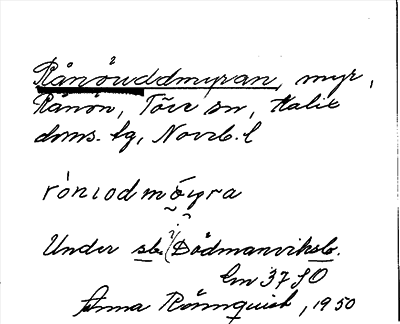 Rånöuddmyran, myr,
Rånön, Töre sn, Kalix
doms. lg, Norrb. l
róniodmøyra
Under sb. Dödmansviksb.
Em 37 SO
Anna Rönnquist, 1950